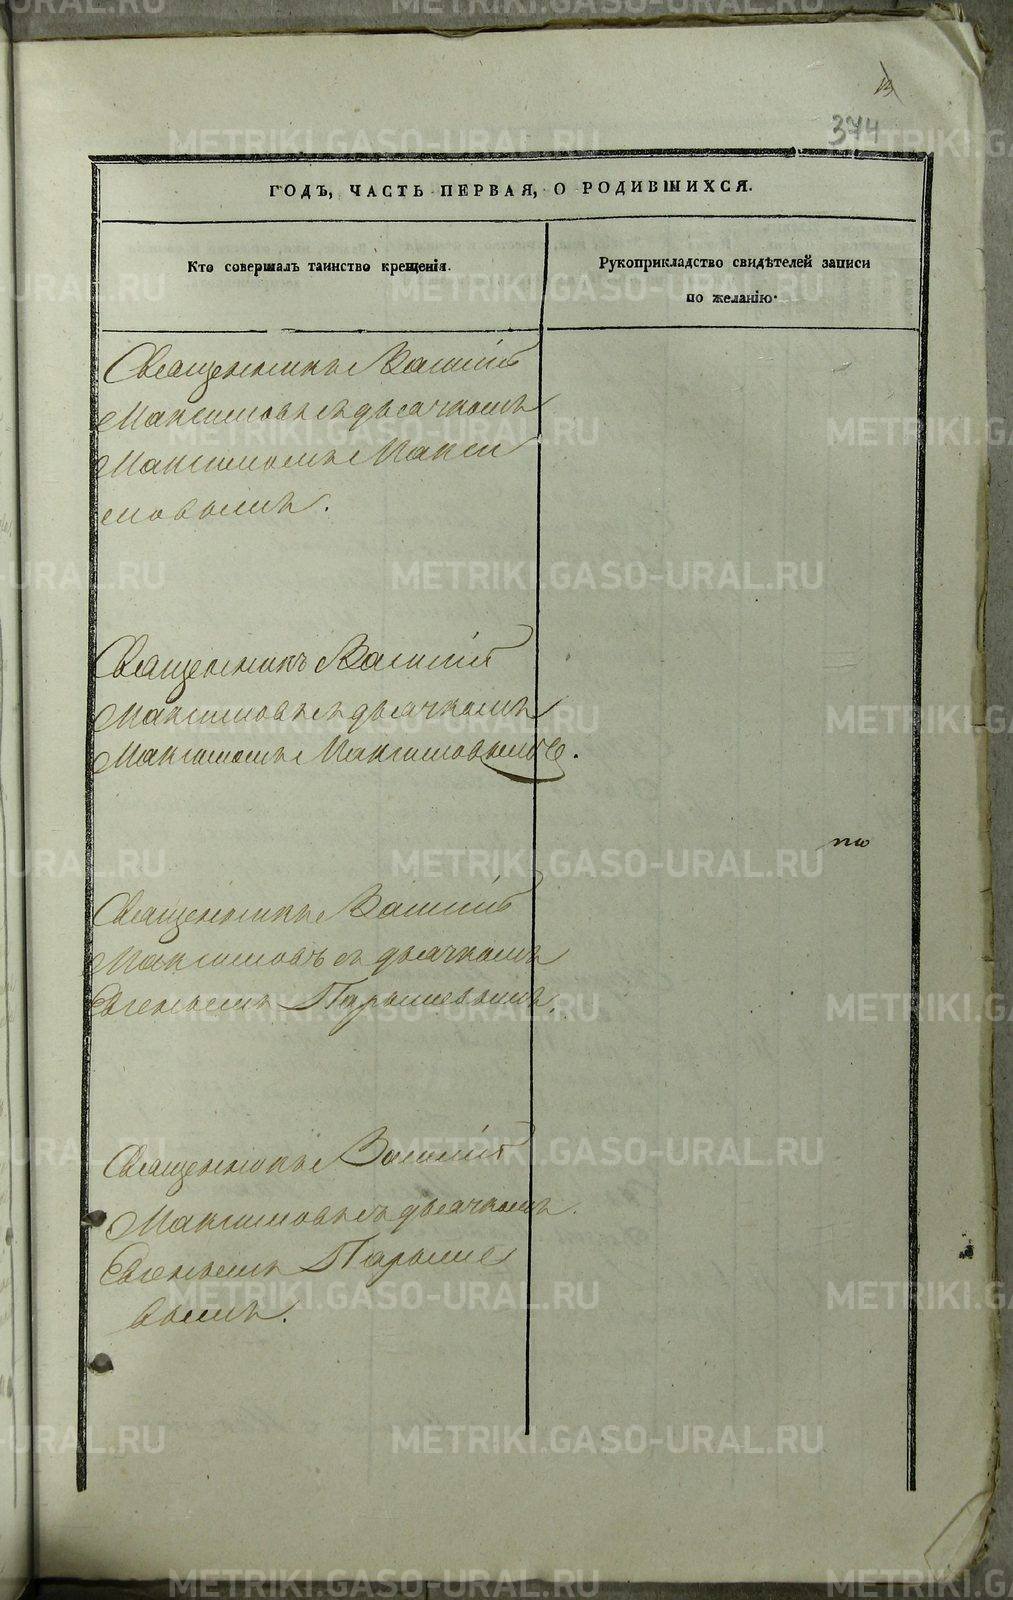 13
374
ГОДЪ, ЧАСТЬ ПЕРВАЯ, О РОДИВШИХСЯ.
Кто совершалъ таинство крещенія.
Рукоприкладство свидѣтелей записи
по желанію.
Священникъ Василій
Максимовъ съ дьячкомъ
Максимомъ Макси
мовымъ.
Священникъ Василій
Максимовъ съ дьячкомъ
Максимомъ Максимовымъ.
по
Священникъ Василій
Максимовъ съ дьячкомъ
Евгеньемъ Парышевымъ.
Священникъ Василій
Максимовъ съ дьячкомъ.
Евгеньемъ Парыше
вымъ.
METRIKI.GASO-URAL.RU